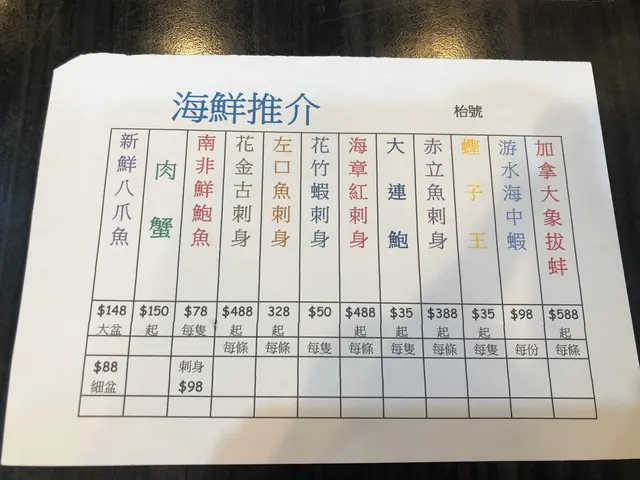 海鮮推介
枱號
新鮮八爪魚
肉蟹
南非鮮鮑魚
花金古刺身
左口魚刺身
花竹蝦刺身
海章紅刺身
大連鮑
赤立魚刺身
蟶子王
游水海中蝦
加拿大象拔蚌
$148 $150 $78 $488 328 $50 $488 $35 $388 $35 $98 $588
大盆 起 每隻 起 起 起 起 起 起 起
每條 每條 每隻 每條 每隻 每條 每隻 每份 每條
$88 刺身
細盆 $98